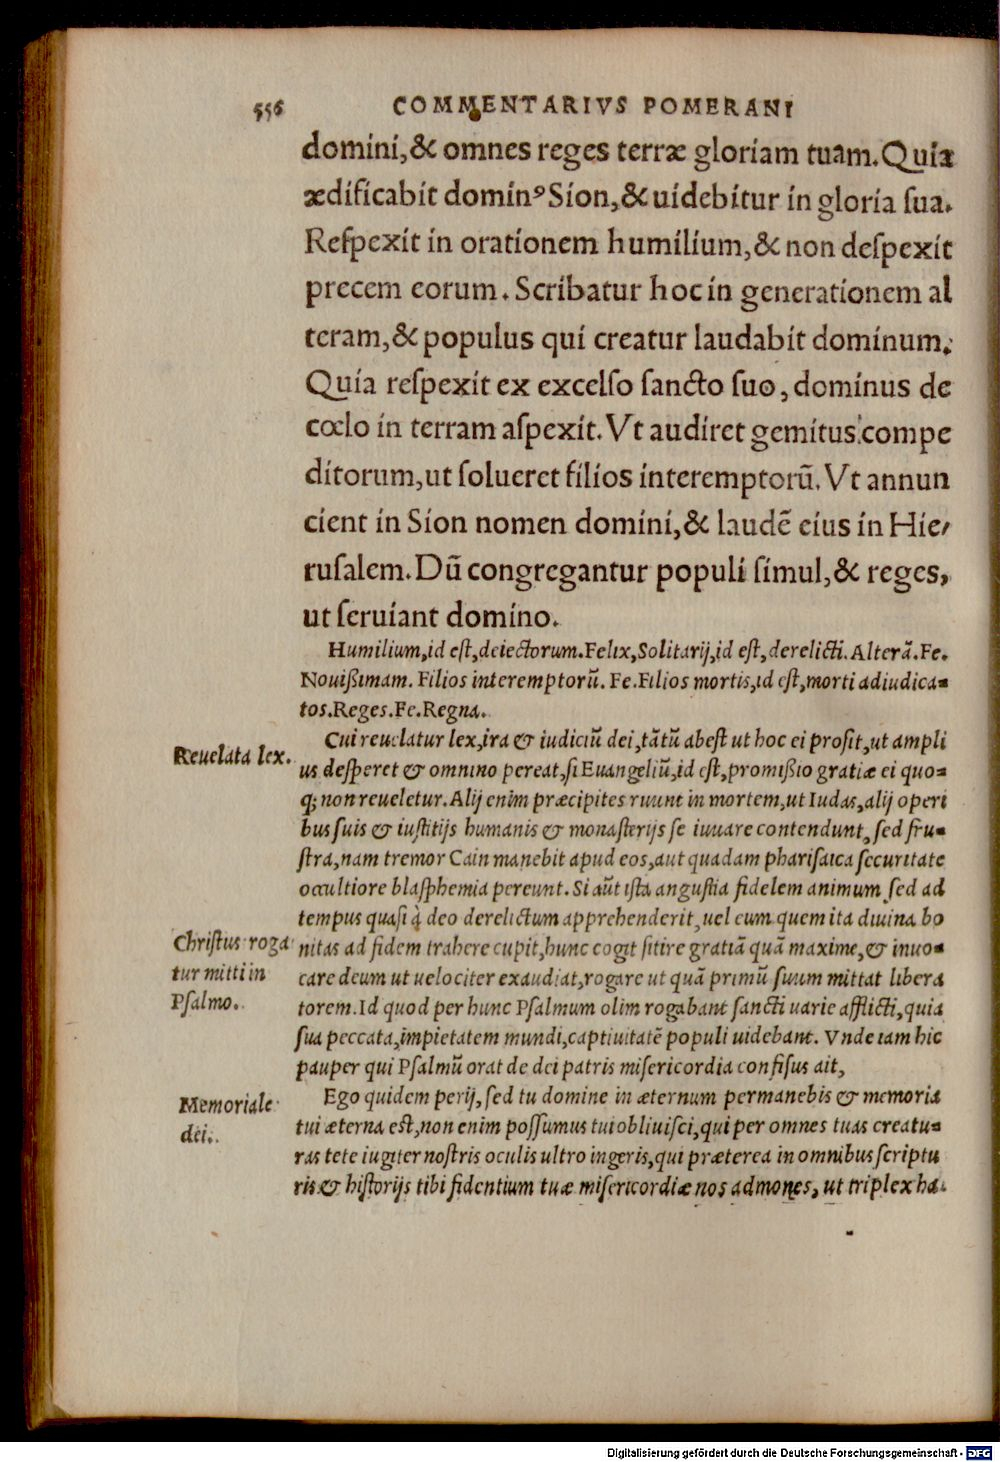 556 COMMENTARIVS POMERANI
domini,& omnes reges terræ gloriam tuam.Quia
ædificabit dominꝰ Sion,& uidebitur in gloria ſua.
Reſpexit in orationem humilium,& non deſpexit
precem eorum. Scribatur hoc in generationem al
teram,& populus qui creatur laudabit dominum.
Quia reſpexit ex excelſo ſancto ſuo, dominus de
cœlo in terram aſpexit. Vt audiret gemitus compe
ditorum,ut ſolueret filios interemptorū. Vt annun
cient in Sion nomen domini,& laudē eius in Hie/
ruſalem.Dū congregantur populi ſimul,& reges,
ut ſeruiant domino.
Humilium,id eſt,deiectorum.Felix,Solitarij,id eſt,derelicti.Alterā.Fe.
Nouißimam. Filios interemptorū. Fe.Filios mortis,id eſt,morti adiudica=
tos.Reges.Fe.Regna.
Reuelata lex.
Cui reuelatur lex,ira & iudiciū dei,tātū abeſt ut hoc ei proſit,ut ampli
us deſperet & omnino pereat,ſi Euangeliū,id eſt,promißio gratiæ ei quo=
q; non reueletur.Alij enim præcipites ruunt in mortem,ut Iudas,alij operi
bus ſuis & iuſtitijs humanis & monaſterijs ſe iuuare contendunt, ſed fru=
ſtra,nam tremor Cain manebit apud eos,aut quadam phariſaica ſecuritate
occultiore blaſphemia pereunt. Si aūt iſta anguſtia fidelem animum ſed ad
tempus quaſi à deo derelictum apprehenderit,uel eum quem ita diuina bo
Chriſtus roga
tur mitti in
Pſalmo.
nitas ad fidem trahere cupit,hunc cogit ſitire gratiā quā maxime,& inuo=
care deum ut uelociter exaudiat,rogare ut quā primū ſuum mittat libera
torem.Id quod per hunc Pſalmum olim rogabant ſancti uarie afflicti,quia
ſua peccata,impietatem mundi,captiuitatē populi uidebant. Vnde iam hic
pauper qui Pſalmū orat de dei patris miſericordia confiſus ait,
Memoriale
dei.
Ego quidem perij,ſed tu domine in æternum permanebis & memoria
tui æterna eſt,non enim poſſumus tui obliuiſci,qui per omnes tuas creatu=
ras te te iugiter noſtris oculis ultro ingeris,qui præterea in omnibus ſcriptu
ris & hiſtorijs tibi fidentium tuæ miſericordiæ nos admones, ut triplex ha=
Digitalisierung gefördert durch die Deutsche Forschungsgemeinschaft - DFG